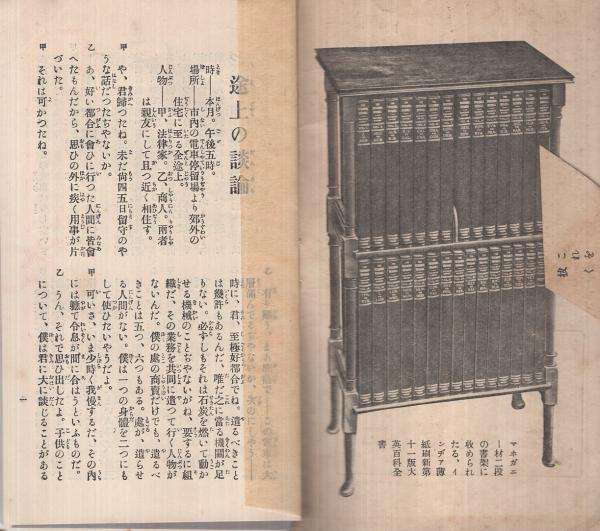 途上の談論
時――本月。午後五時。
場所――市内の電車停留場より郊外の
住宅に至る全途上。
人物――甲、法律家。乙、商人。兩者
は親友にして且つ近く相住す。
甲 や、君歸つたね。未だ尙四五日留守のや
うな話だつたぢやないか。
乙 あゝ、好い都合に會ひに行つた人間に皆會
へたもんだから、思ひの外に疾く用事が片
づいた。
甲 それは可かつたね。
時に、君、至極好都合でね。遣るべきこと
は幾許もあるんだ、唯だ之に當る機關が足
りない。必ずしもそれは石炭を燃いて動か
せる機械のことぢやないがね、要するに組
織だ、その業務を共同に遣つて行く人物が
ないんだ。僕の處の商賣だけでも、遣るべ
きことは五つ、六つもある。處が、遣らせ
る人間がない。僕は一つの身體を二つにも
して使ひたいやうだよ。
甲 可いさ、いま少時く我慢するだ、その內
には軈て令息が間に合はうといふものだ。
乙 うん、それで思ひ出したよ。子供のこと
について、僕は君に大に談じることがある
一
これを披く
マホガニ
ー材二段
の書架に
收められ
たる、イ
ンヂア薄
紙刷新第
十一版大
英百科全
書